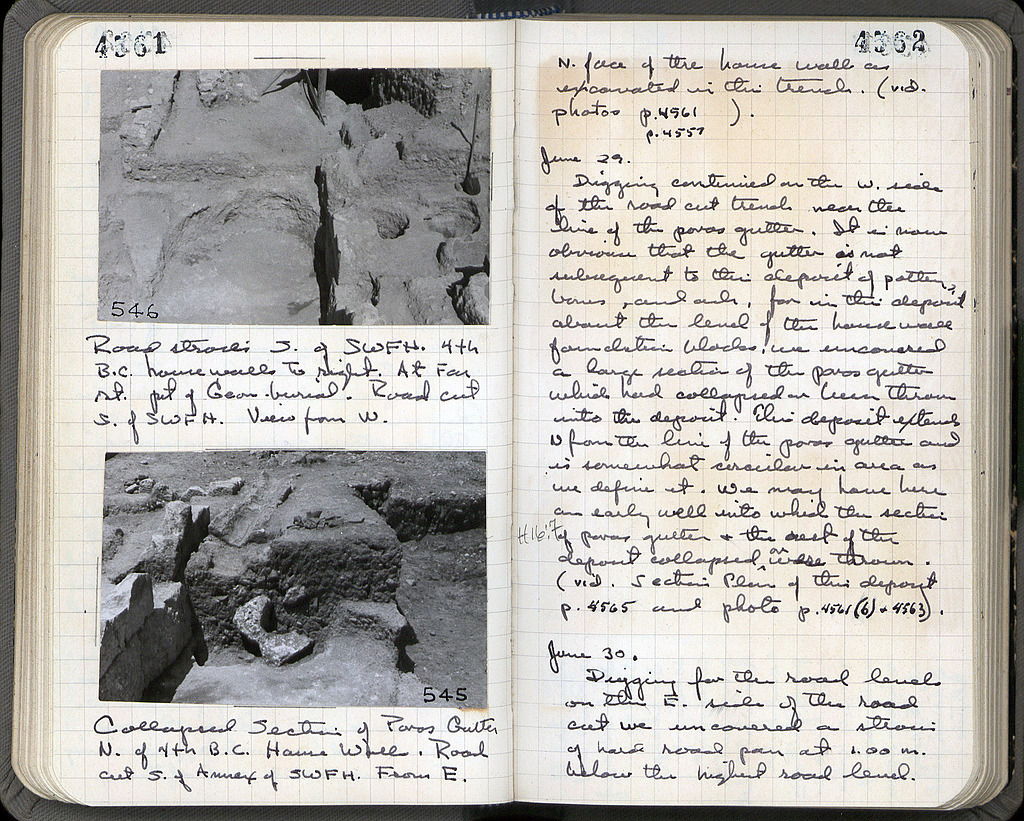 4561
546
Road strosis S. of SWFH. 4th
B.C. house walls to right. At Far
rt. pit of Geom. burial. Road cut
S. of SWFH. View from W.
545
Collapsed Section of Poros Gutter
N. of 4th B.C. House Wall. Road
cut S. of Annex of SWFH. From E.
4562
N. face of the house wall as
excavated in this trench. (vid.
photos p.4561 ).
p.4557
June 29.
Digging continued on the W. side
of the road cut trench near the
line of the poros gutter. It is now
obvious that the gutter is not
subsequent to this deposit of pottery,
bones, and ash, for in this deposit
about the level of the house wall
foundation blocks, we uncovered
a large section of the poros gutter
which had collapsed or been thrown
into the deposit. This deposit extends
N from the line of the poros gutter and
is somewhat circular in area as
we define it. We may have here
an early well into which the section
H16:7
of poros gutter + the rest of the
deposit collapsed or were thrown.
(vid. Section Plan of this deposit
p. 4565 and photo p.4561(b) + 4563).
June 30.
Digging for the road levels
on the E. side of the road
cut we uncovered a strosis
of hard road pan at 1.00 m.
below the highest road level.